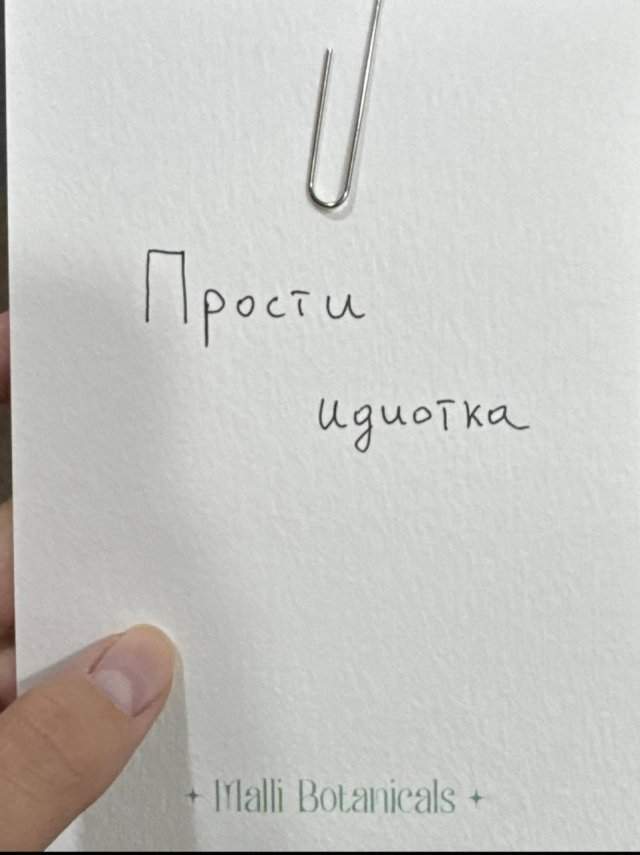 Прости
идиотка
+ Malli Botanicals +